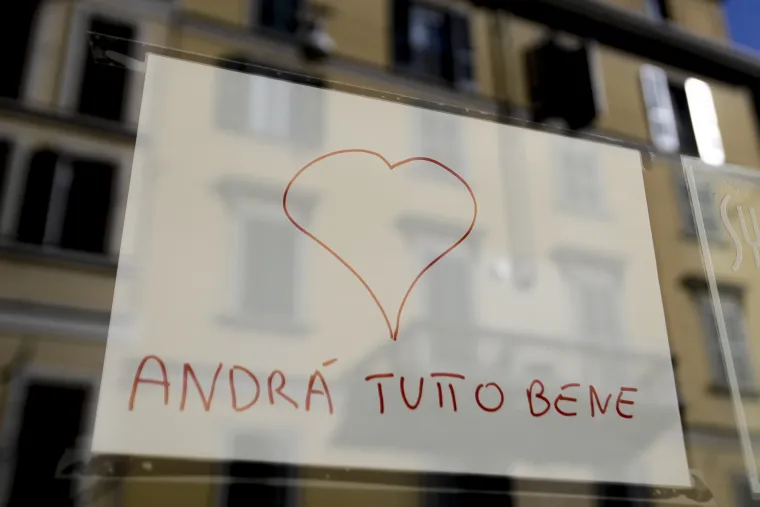 ANDRÁ TUTTO BENE